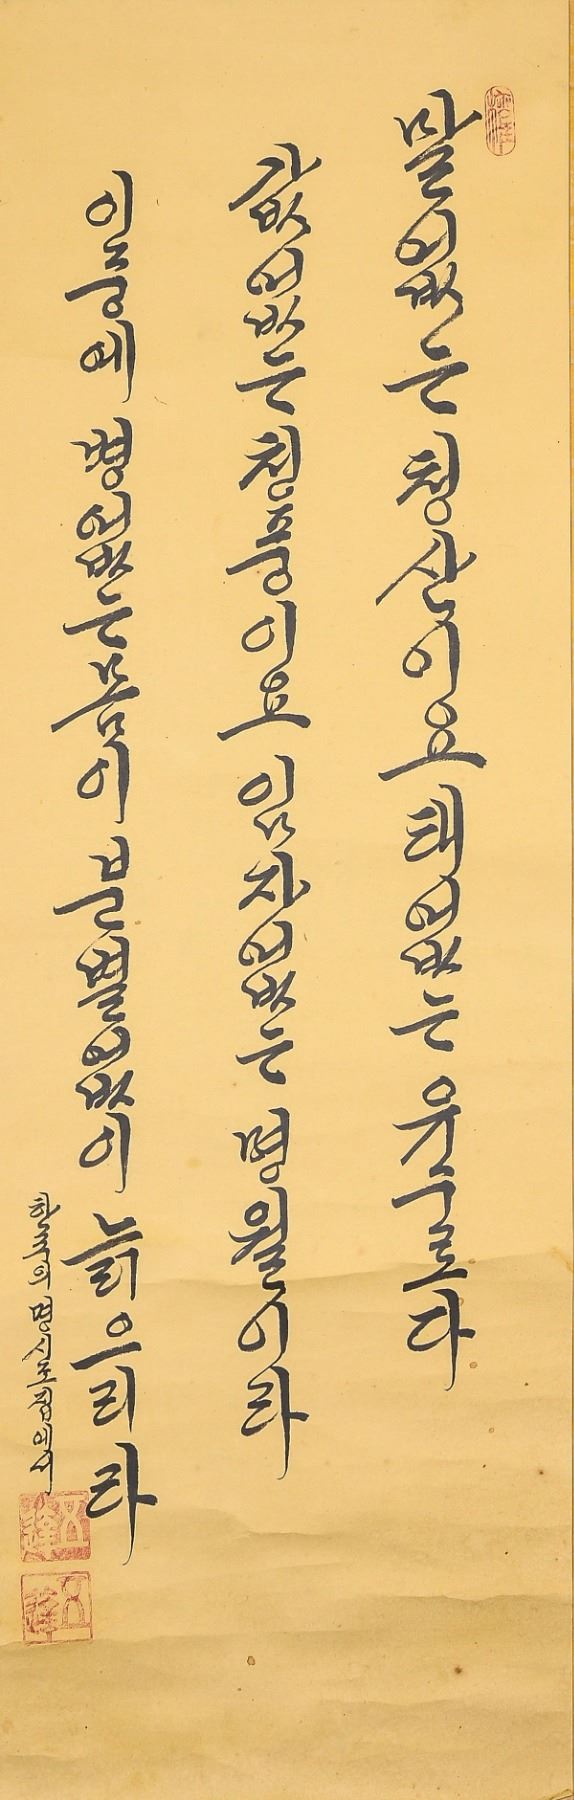 말없는 청산이요 태없는 유수로다
값없는 청풍이요 임자없는 명월이라
이중에 병없는 몸이 분별없이 늙으리라
명시조